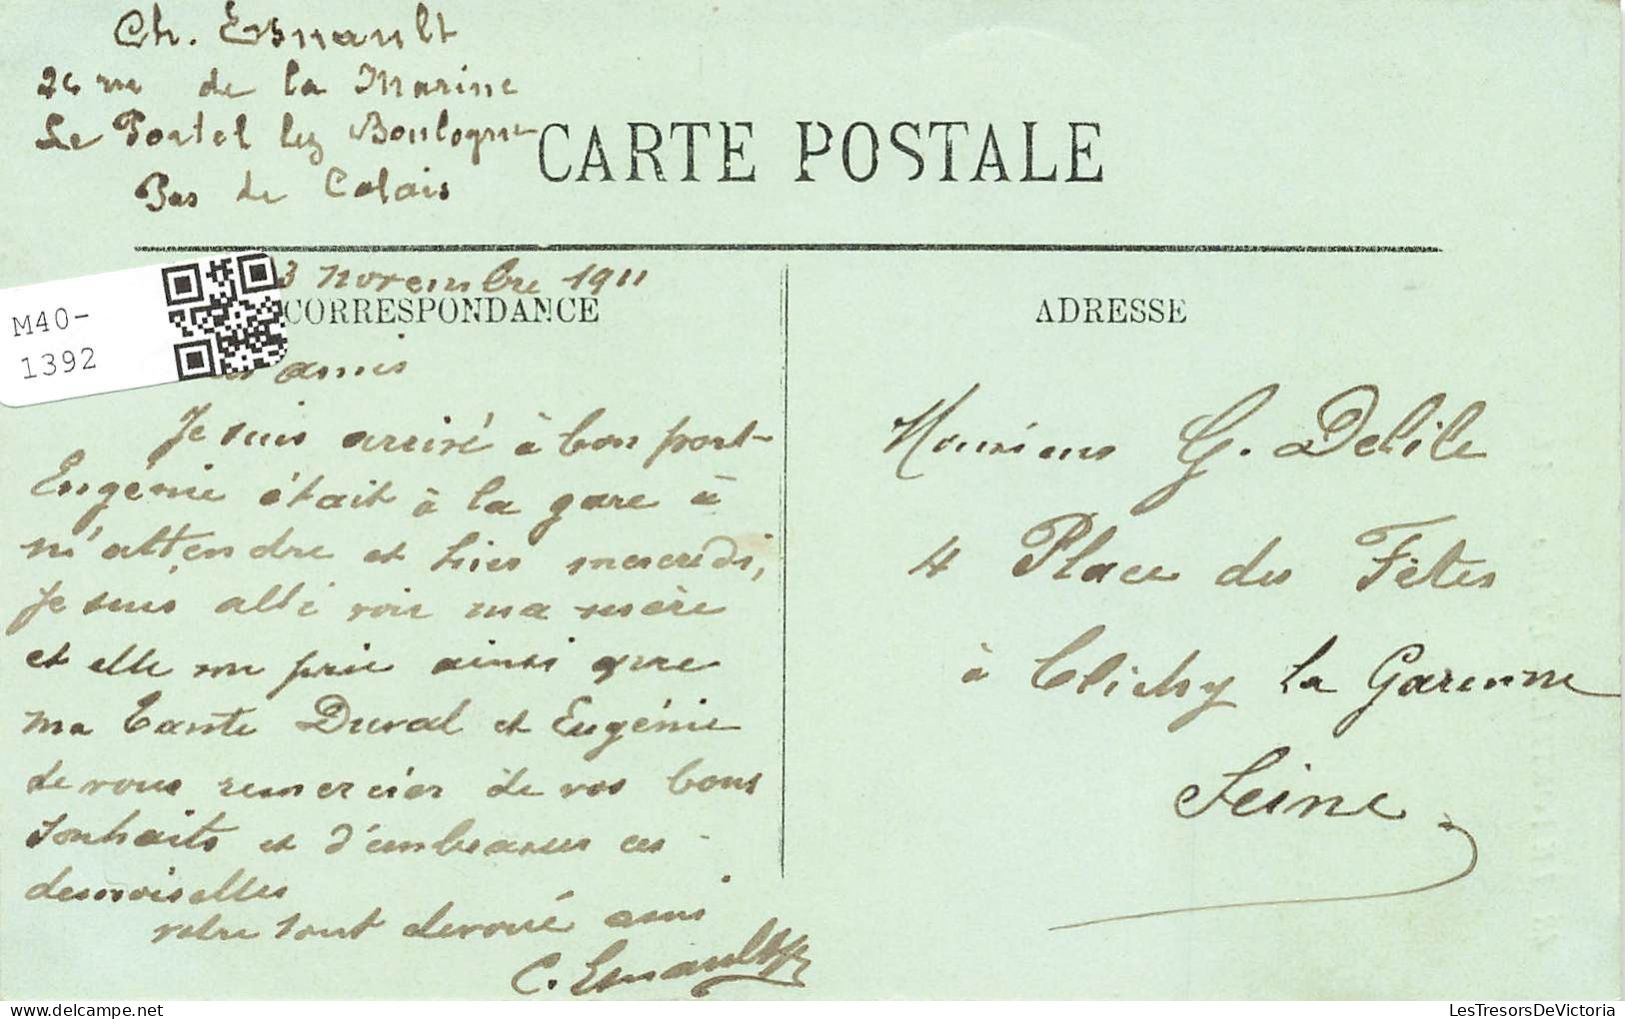 Ch. Esnault
26 rue de la Marine
Le Portel lez Boulogne
Pas de Calais
CARTE POSTALE
3 Novembre 1911
CORRESPONDANCE
ADRESSE
M40-
1392
amis
Je suis arrivé à bon port
Eugénie était à la gare à
m'attendre et hier mercredi,
Je suis allé voir ma mère
et elle me prie ainsi que
ma Tante Duval et Eugénie
de vous remercier de vos bons
souhaits et d'embrasser ces
demoiselles
votre tout dévoué ami
C. Esnault
Monsieur G. Delile
4 Place des Fêtes
à Clichy la Garenne
Seine
LesTresorsDeVictoria - delcampe.net